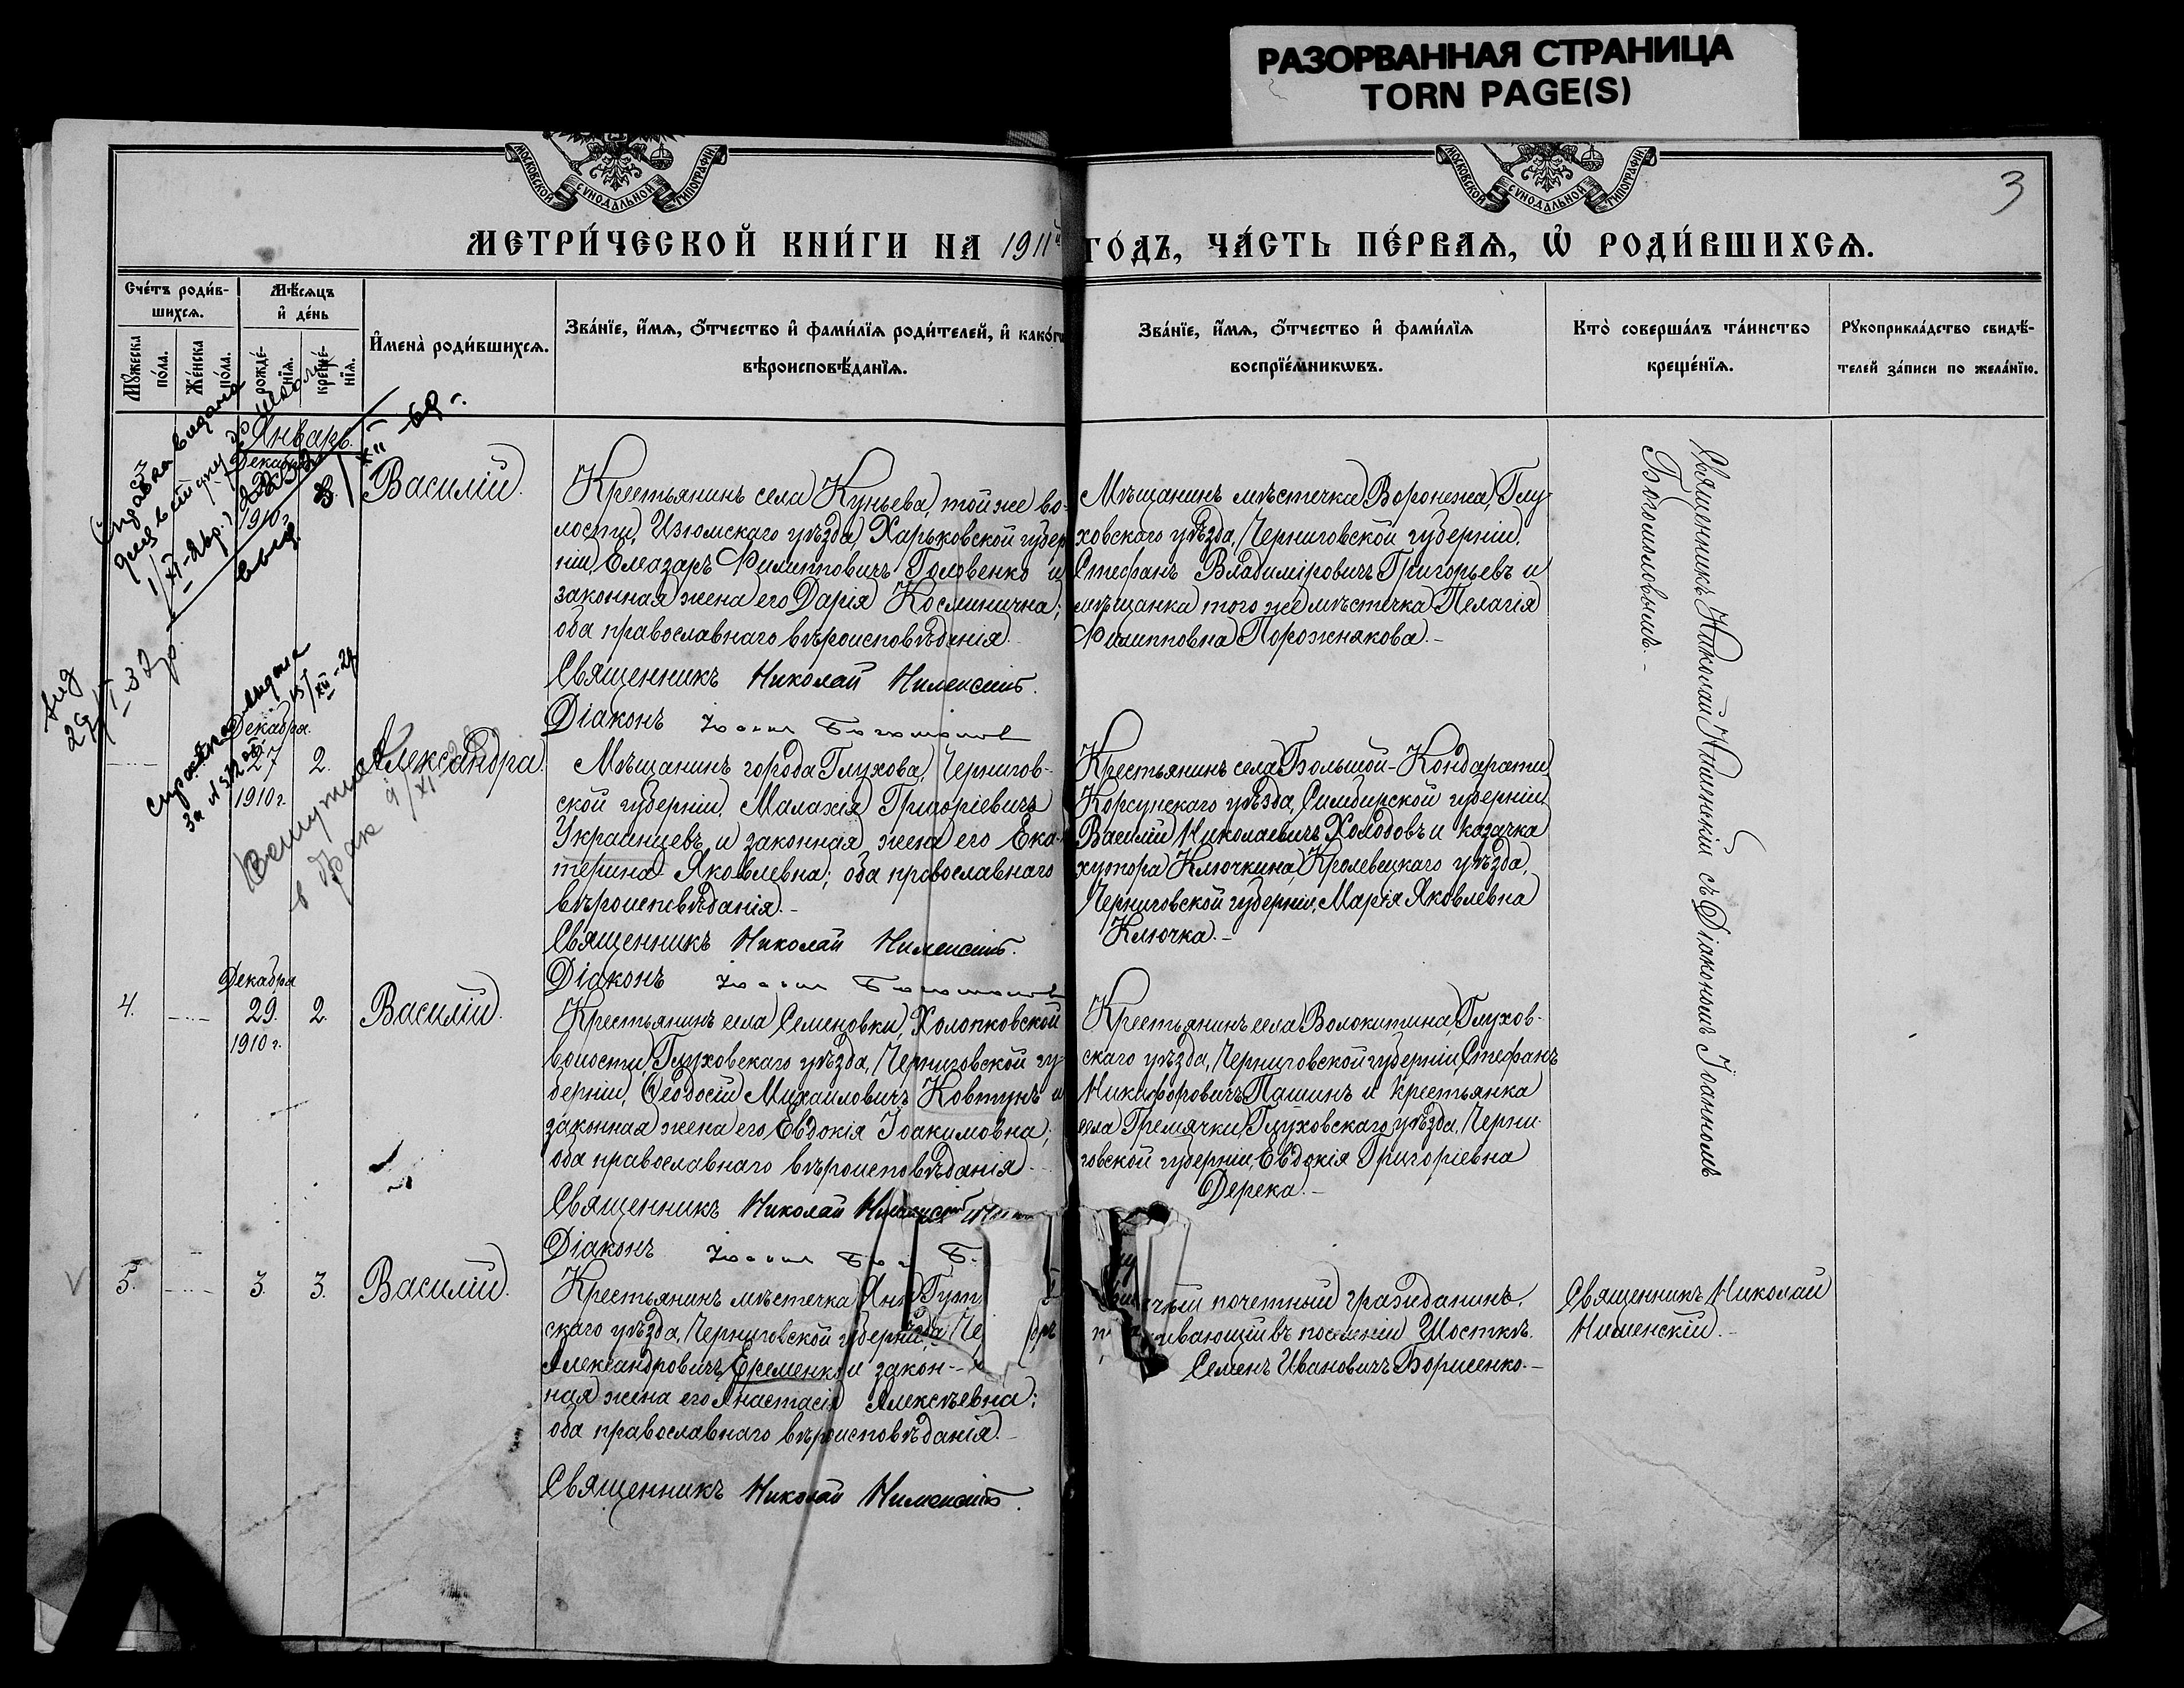 РАЗОРВАННАЯ СТРАНИЦА
TORN PAGE(S)
МОСКОВСКОЙ СУНОДАЛЬНОЙ ТИПОГРАФІИ
МОСКОВСКОЙ СУНОДАЛЬНОЙ ТИПОГРАФІИ
3
МЕТРИ́ЧЕСКОЙ КНИ́ГИ НА 1911й ГО́ДЪ, ЧА́СТЬ ПЕ́РВАѦ, Ѡ РОДИ́ВШИХСѦ.
Сче́тъ роди́в-
шихсѧ.
Мꙋ́жеска по́ла.
Же́нска по́ла.
Мѣ́сѧцъ
и҆ де́нь
рожде́-
нїѧ.
креще́-
нїѧ.
И҆мена̀ роди́вшихсѧ.
Зва́нїе, и҆́мѧ, о҆́тчество и҆ фами́лїѧ роди́телей, и҆ како́гѡ
вѣроисповѣ́данїѧ.
Зва́нїе, и҆́мѧ, о҆́тчество и҆ фами́лїѧ
воспрїе́мникѡвъ.
Кто̀ соверша́лъ та́инство
креще́нїѧ.
Рꙋкоприкла́дство свидѣ́-
телей за́писи по жела́нїю.
Январь.
Декабря
1910 г.
Василій.
Крестьянинъ села Куньева, той же во-
лости, Изюмскаго уѣзда, Харьковской губер
ніи, Елеазаръ Филипповичъ Головенко и
законная жена его Дарія Косминична;
оба православнаго вѣроисповѣданія.
Священникъ Николай Нименскій.
Діаконъ
Мѣщанинъ мѣстечка Воронежа, Глу-
ховскаго уѣзда, Черниговской губерніи,
Стефанъ Владиміровичъ Григорьевъ и
мѣщанка того же мѣстечка Пелагія
Филипповна Порожнякова.-
Священникъ Николай Нименскій съ Діакономъ Іоанномъ
Богомоловымъ.-
Справка выдана
выд.
справка выдана
Вступила
в брак
Декабря.
27
1910 г.
2.
Александра.
Мѣщанинъ города Глухова, Чернигов-
ской губерніи, Малахія Григоріевичъ
Украинцевъ и законная жена его Ека-
терина Яковлевна; оба православнаго
вѣроисповѣданія.-
Священникъ Николай Нименскій.
Діаконъ
Крестьянинъ села Большой-Кондарати,
Корсунскаго уѣзда, Симбирской губерніи,
Василій Николаевичъ Холодовъ и казачка
хутора Ключкина, Кролевецкаго уѣзда,
Черниговской губерніи, Марія Яковлевна
Ключка.-
4.
Декабря
29.
1910 г.
2.
Василій.
Крестьянинъ села Семеновки, Холопковской
волости, Глуховскаго уѣзда, Черниговской гу-
берніи, Ѳеодосій Михаиловичъ Ковтунъ и
законная жена его Евдокія Іоакимовна;
оба православнаго вѣроисповѣданія.
Священникъ Николай
Діаконъ
Крестьянинъ села Волокитина, Глухов-
скаго уѣзда, Черниговской губерніи, Стефанъ
Никифоровичъ Пашинъ и крестьянка
села Гремячки, Глуховскаго уѣзда, Черни-
говской губерніи, Евдокія Григоріевна
Дерека.-
5.
3.
3.
Василій.
Крестьянинъ мѣстечка
скаго уѣзда, Черниговской губерніи,
Александровичъ Еременко и закон-
ная жена его Анастасія Алексѣевна;
оба православнаго вѣроисповѣданія.-
Священникъ Николай Нименскій.
почетный гражданинъ,
въ поселеніи Шосткѣ,
Семенъ Ивановичъ Борисенко.-
Священникъ Николай
Нименскій.-